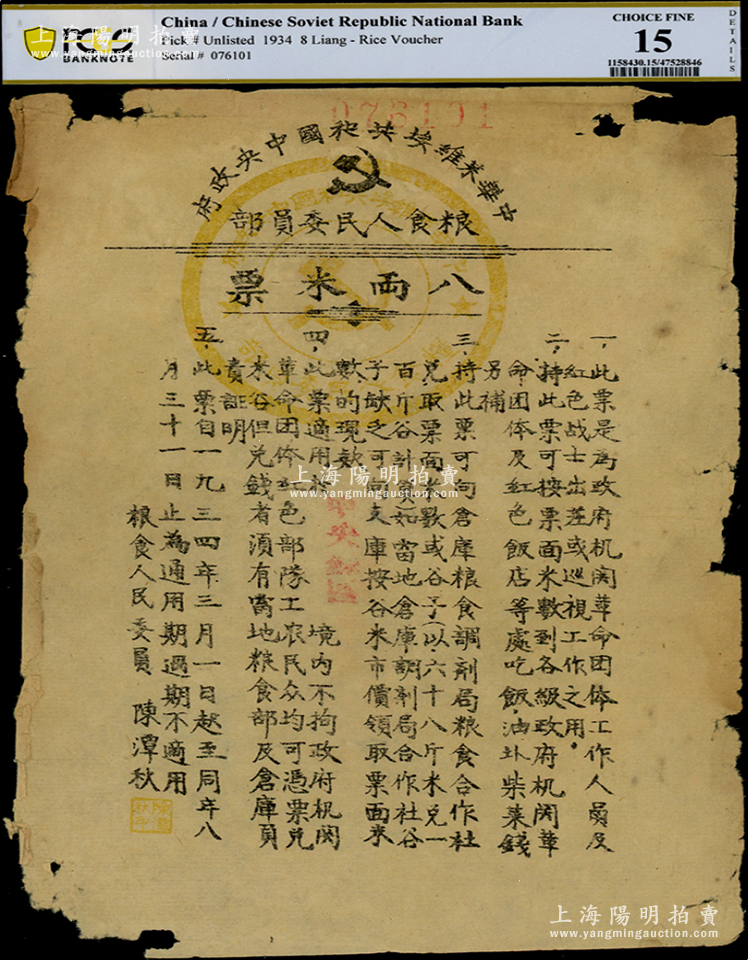 上海陽明拍賣
www.yangmingauction.com
PCGS
BANKNOTE
China / Chinese Soviet Republic National Bank
Pick# Unlisted 1934 8 Liang - Rice Voucher
Serial # 076101
CHOICE FINE
15
1158430.15/47528846
DETAILS
076101
中華苏維埃共和國中央政府
粮食人民委員部
八両米票
一,此票是為政府机関革命团体工作人員及
紅色战士出差或巡視工作之用。
二,持此票可按票面米数到各級政府机関革
命团体及紅色飯店等處吃飯,油盐柴菜錢
另補
三,持此票可向倉庫粮食調剂局粮食合作社
兑取票面米数或谷子(以六十八斤米兑一
百斤谷計算)如當地倉庫調剂局合作社谷
子缺乏可向支庫按谷米市價領取票面米
数的現欵
四,此票適用於中央蘇區境内不拘政府机関
革命团体紅色部隊工农民众均可憑票兑
米谷但兑錢者須有當地粮食部及倉庫負
責証明
五,此票自一九三四年三月一日起至同年八
月三十一日止為通用期過期不適用
粮食人民委員 陳潭秋
上海陽明拍賣
www.yangmingauction.com
上海陽明拍賣
www.yangmingauction.com